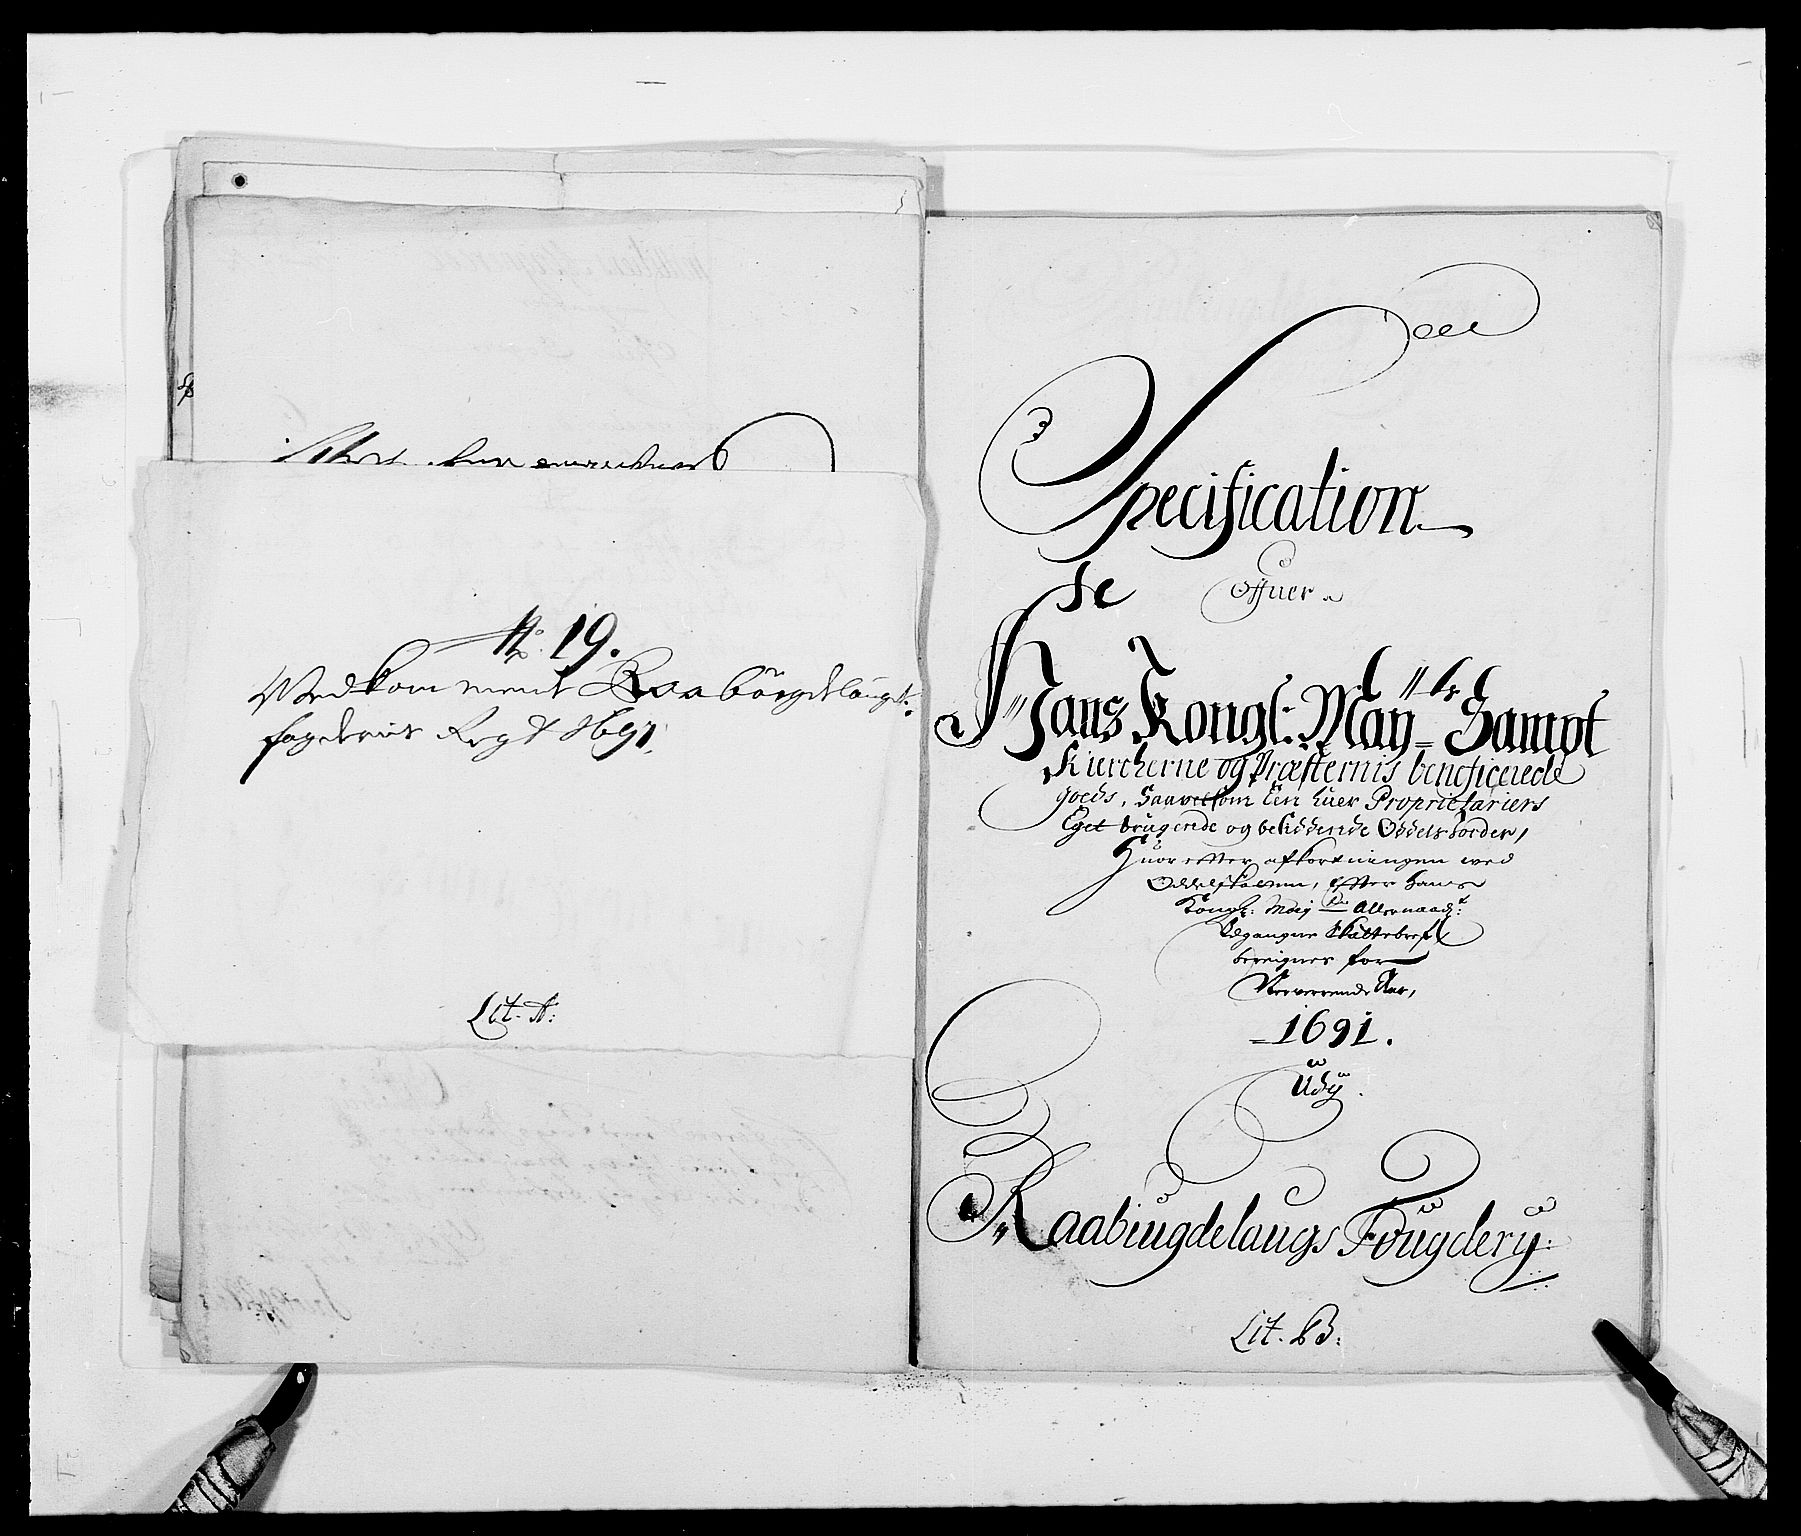 No. 19.
Vedkommende Raaböigdelaugs
fogderies Regt 1691.
Lit. A:
Specification
Offuer
Hans Kongl: May:ts Sampt
Kiercherne og Præsternis beneficerede
goeds, Saavelsom Een huer Proprietariers
Eget brugende og besiddende Oddels Jorder,
Huor effter afkortningen wed
Oddelskatten, Effter Hans
Kongl: May:ts Allernaad:t
Udgangne Skattebref
beregnes for
Nerverende Aar,
1691.
Udj
Raabiugdelaugs Fougderij:
Lit. B: